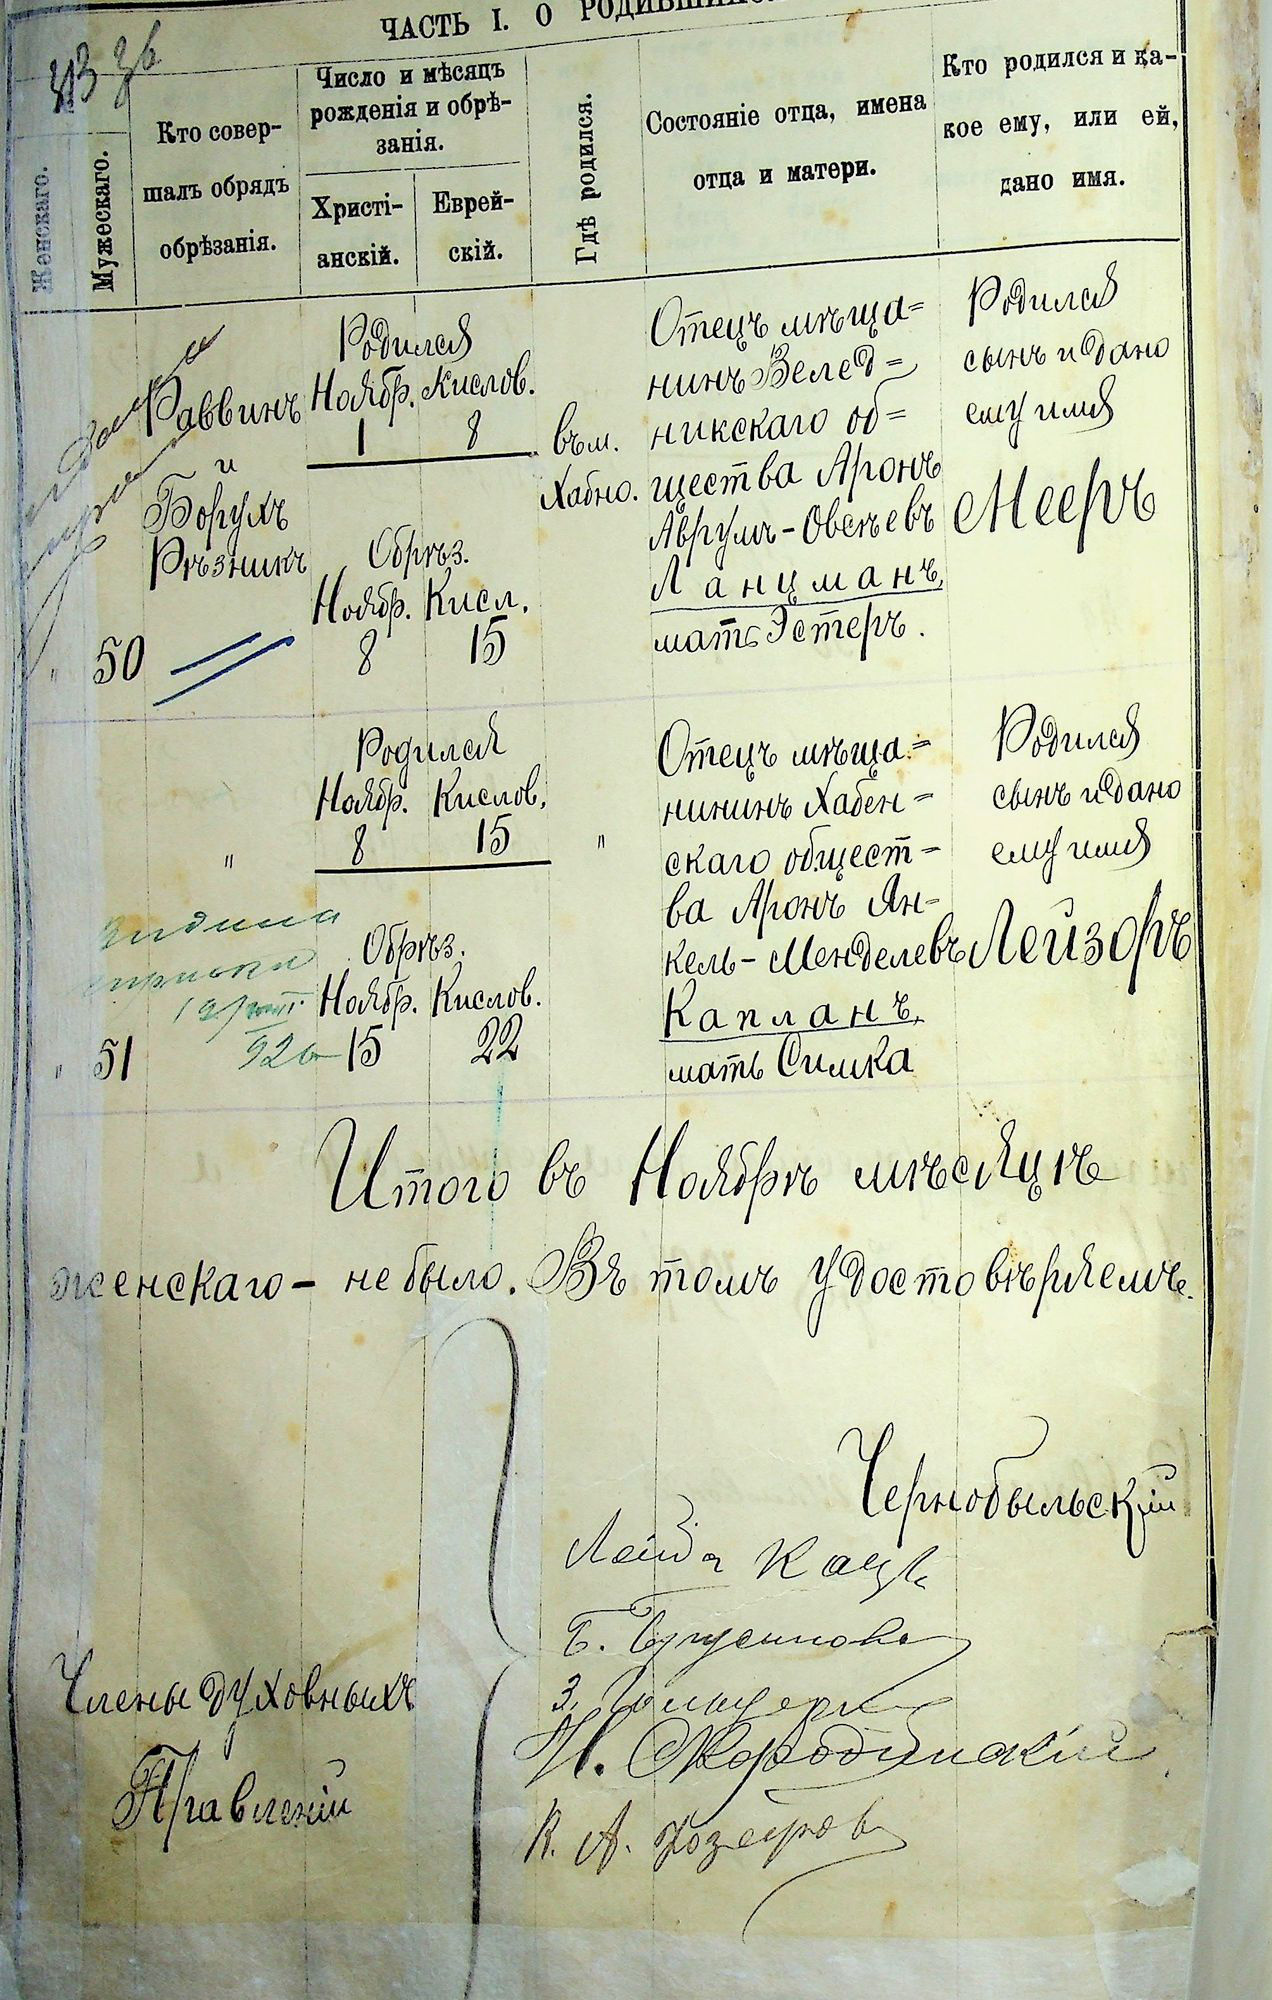 ЧАСТЬ I. О РОДИВШИХСЯ
Женскаго.
Мужескаго.
Кто совер-
шалъ обрядъ
обрѣзанія.
Число и мѣсяцъ
рожденія и обрѣ-
занія.
Христі-
анскій.
Еврей-
скій.
Гдѣ родился.
Состояніе отца, имена
отца и матери.
Кто родился и ка-
кое ему, или ей,
дано имя.
" 50
Раввинъ
и
Борухъ
Рѣзникъ
Родился
Ноябр. Кислов.
1 8
Обрѣз.
Ноябр. Кисл.
8 15
въ м.
Хабно.
Отецъ мѣща=
нинъ Велед=
никскаго об=
щества Аронъ
Аврумъ-Овсѣевъ
Ланцманъ,
мать Эстеръ.
Родился
сынъ и дано
ему имя
Мееръ
" 51
"
Родился
Ноябр. Кислов.
8 15
Обрѣз.
Ноябр. Кислов.
15 22
"
Отецъ мѣща=
нинъ Хабен=
скаго общест=
ва Аронъ Ян-
кель-Менделевъ
Капланъ,
мать Симка
Родился
сынъ и дано
ему имя
Лейзоръ
Итого въ Ноябрѣ мѣсяцѣ
женскаго - не было. Въ томъ удостовѣряемъ.
Чернобыльскій
Члены духовныхъ
Правленій